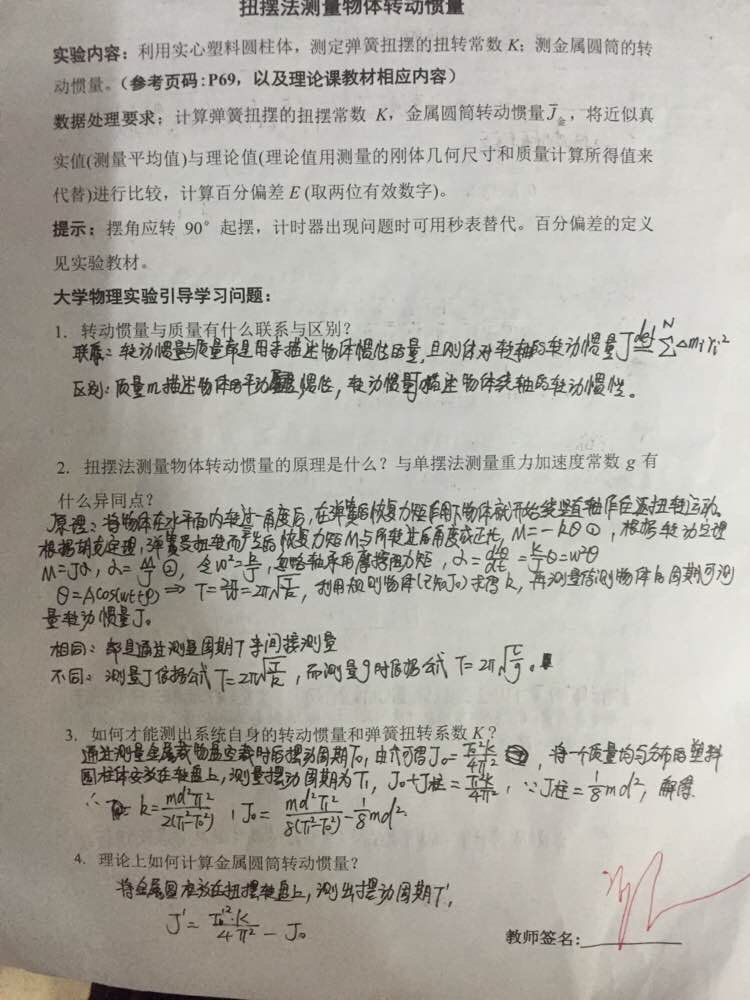 扭摆法测量物体转动惯量
实验内容：利用实心塑料圆柱体，测定弹簧扭摆的扭转常数 K；测金属圆筒的转
动惯量。（参考页码：P69，以及理论课教材相应内容）
数据处理要求：计算弹簧扭摆的扭摆常数 K，金属圆筒转动惯量 J̅金，将近似真
实值(测量平均值)与理论值(理论值用测量的刚体几何尺寸和质量计算所得值来
代替)进行比较，计算百分偏差 E (取两位有效数字)。
提示：摆角应转 90° 起摆，计时器出现问题时可用秒表替代。百分偏差的定义
见实验教材。
大学物理实验引导学习问题：
1. 转动惯量与质量有什么联系与区别？
联系：转动惯量与质量都是用来描述物体惯性的量，且刚体对转轴的转动惯量 J def= N∑ Δmᵢrᵢ²
区别：质量m描述物体的平动惯性，转动惯量J描述物体绕轴的转动惯性。
2. 扭摆法测量物体转动惯量的原理是什么？与单摆法测量重力加速度常数 g 有
什么异同点？
原理：将物体在水平面内转过一角度后，在弹簧的恢复力矩作用下物体就开始绕竖直轴作往返扭转运动。
根据胡克定理，弹簧受扭转而产生的恢复力矩M与所转过的角度成正比，M=-kθ ①，根据转动定理
M=Jα，α=M/J ②，令ω²=k/J，忽略轴承的摩擦阻力矩，α=d²θ/dt²=k/Jθ=ω²θ
θ=Acos(ωt+φ) ⇒ T=2π/ω=2π√(J/k)，利用规则物体(已知J₀)求得k，再测量待测物体的周期可测
量转动惯量J。
相同：都是通过测量周期T来间接测量
不同：测量J依据公式 T=2π√(J/k)，而测量g时依据公式 T=2π√(l/g)。
3. 如何才能测出系统自身的转动惯量和弹簧扭转系数 K？
通过测量金属载物盘空载时的摆动周期T₀，由式可得J₀=T₀²k/4π²，将一个质量均匀分布的塑料
圆柱体安放在转盘上，测量摆动周期为T₁，J₀+J柱=T₁²k/4π²，∵J柱=1/8md²，解得
∴ k=md²π²/2(T₁²-T₀²)，J₀=md²T₁²/8(T₁²-T₀²)-1/8md²
4. 理论上如何计算金属圆筒转动惯量？
将金属圆柱放在扭摆转盘上，测出摆动周期T'，
J'=T'²·k/4π²-J₀
教师签名：